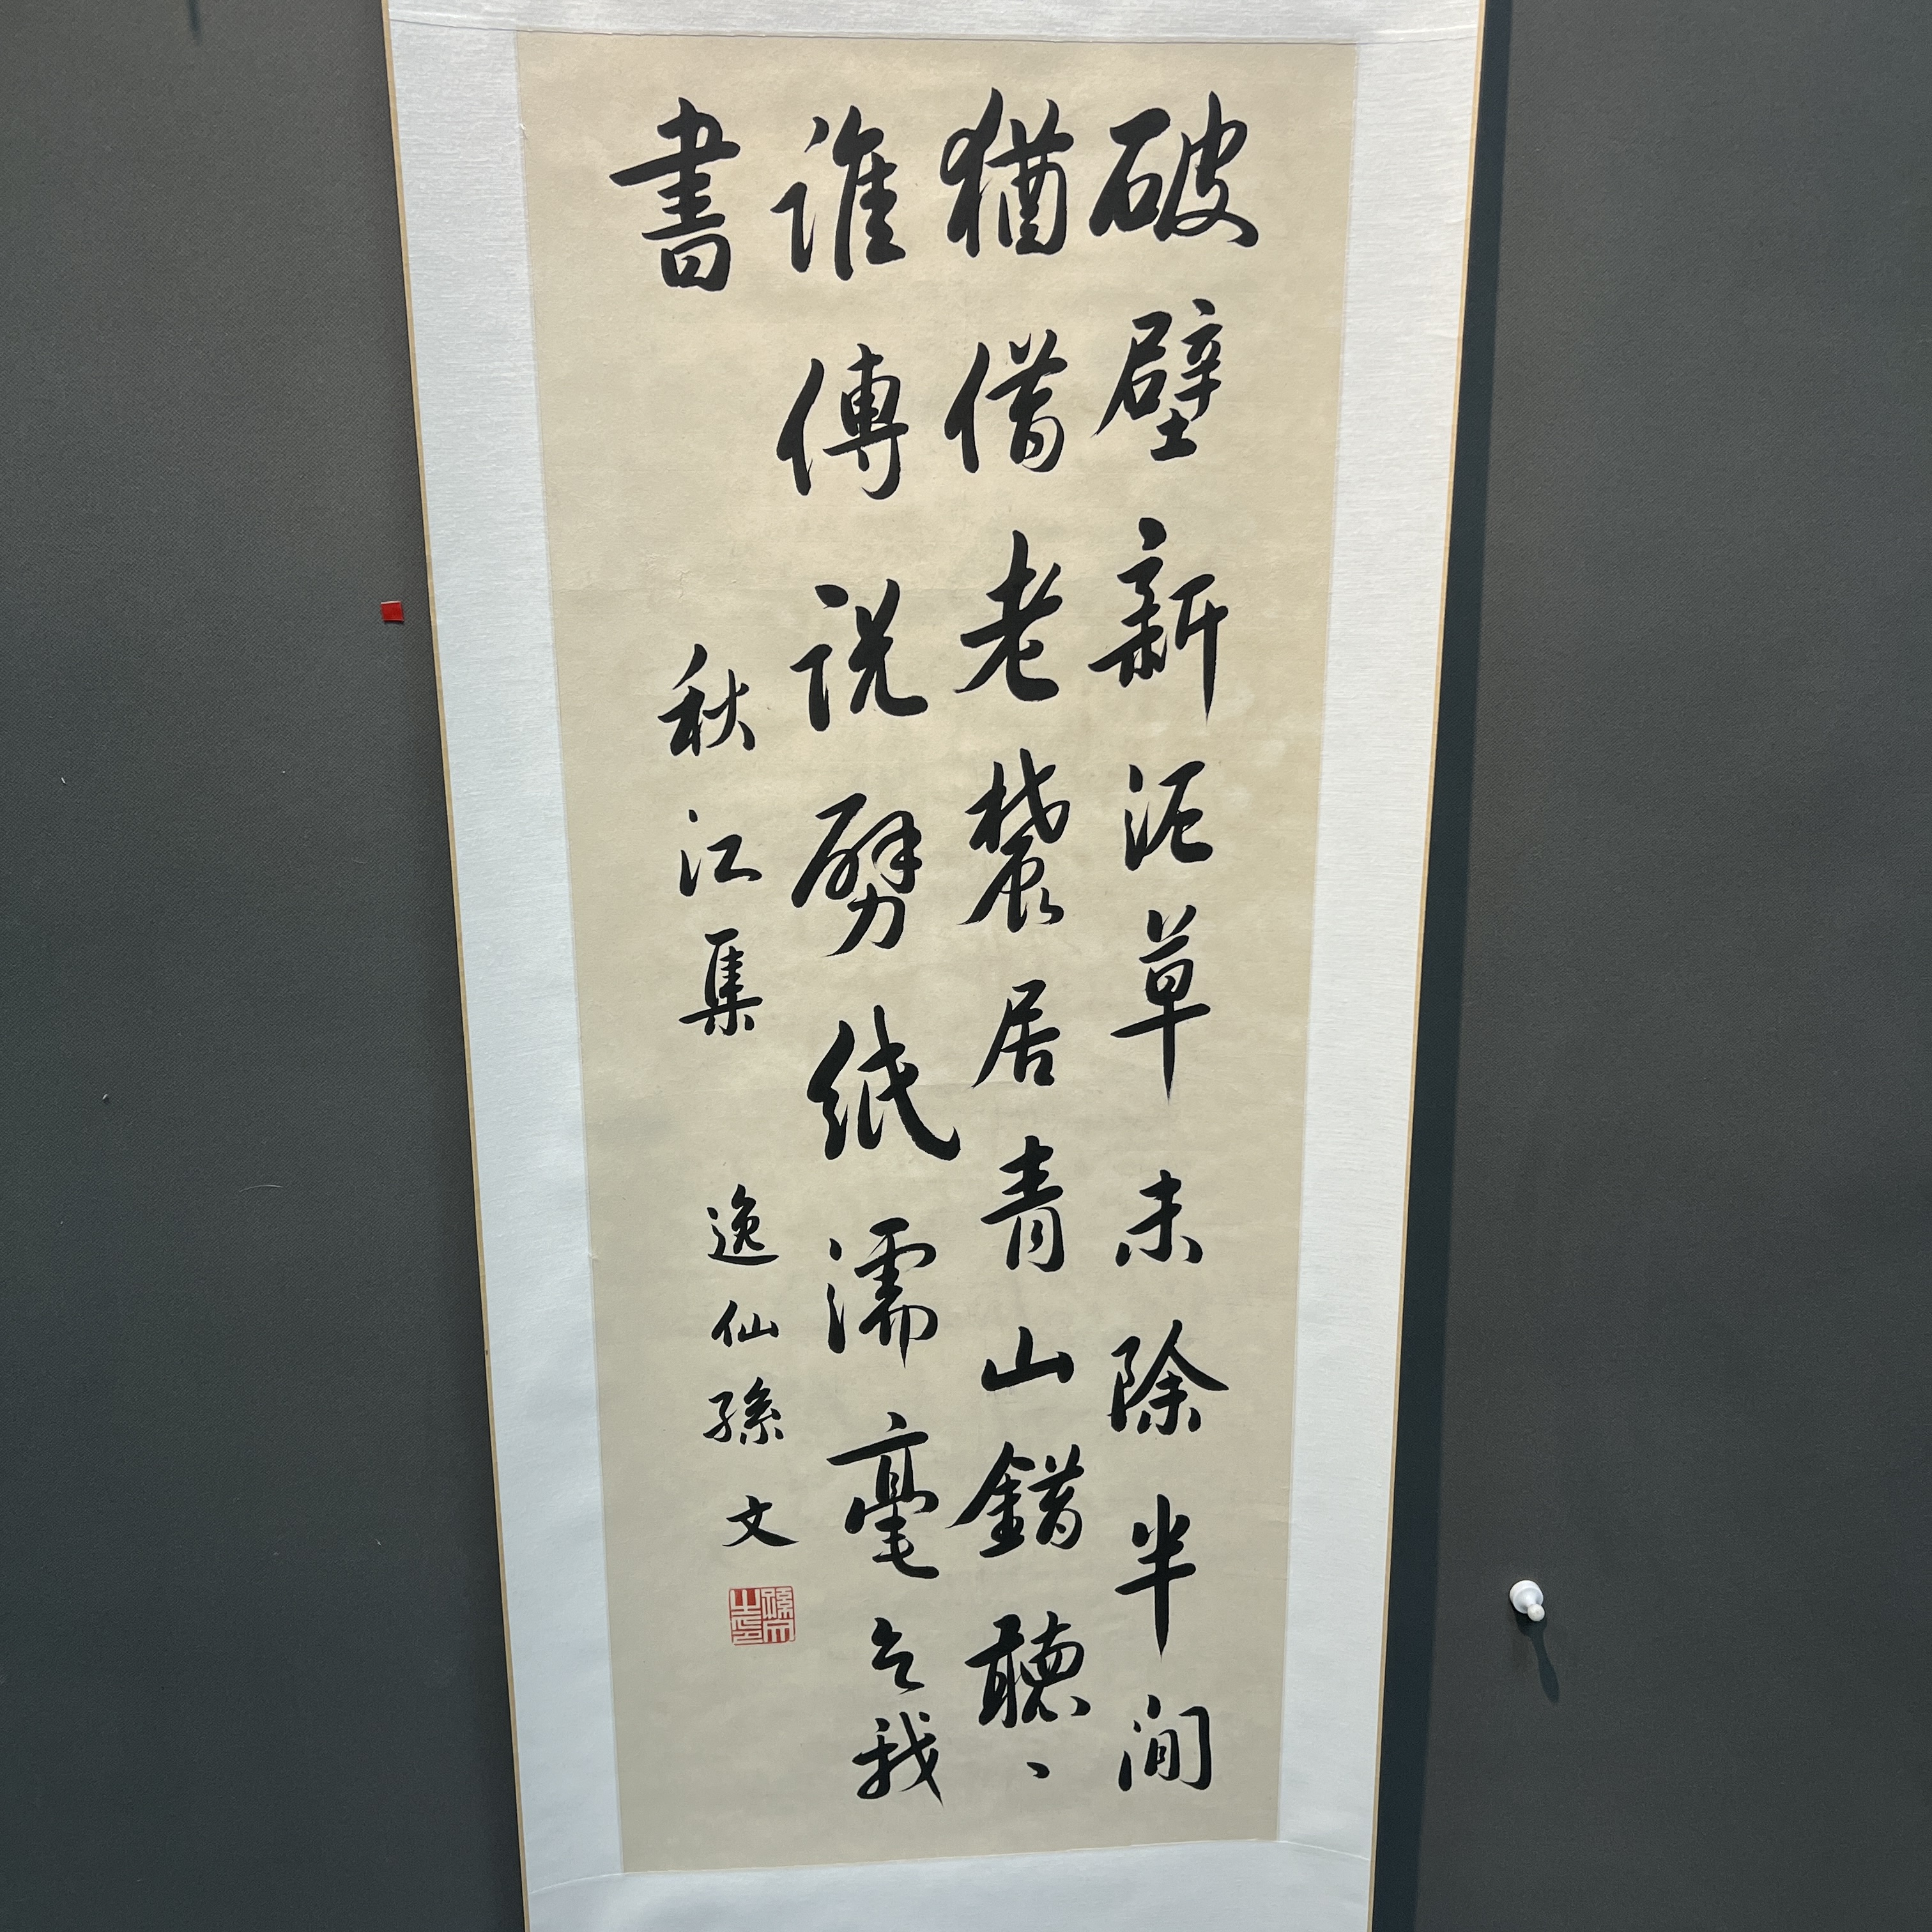 破壁新泥草未除半間
猶借老農居青山錯聽、
誰傳說劈紙濡毫乞我
書
秋江集
逸仙孫文
孫文之印